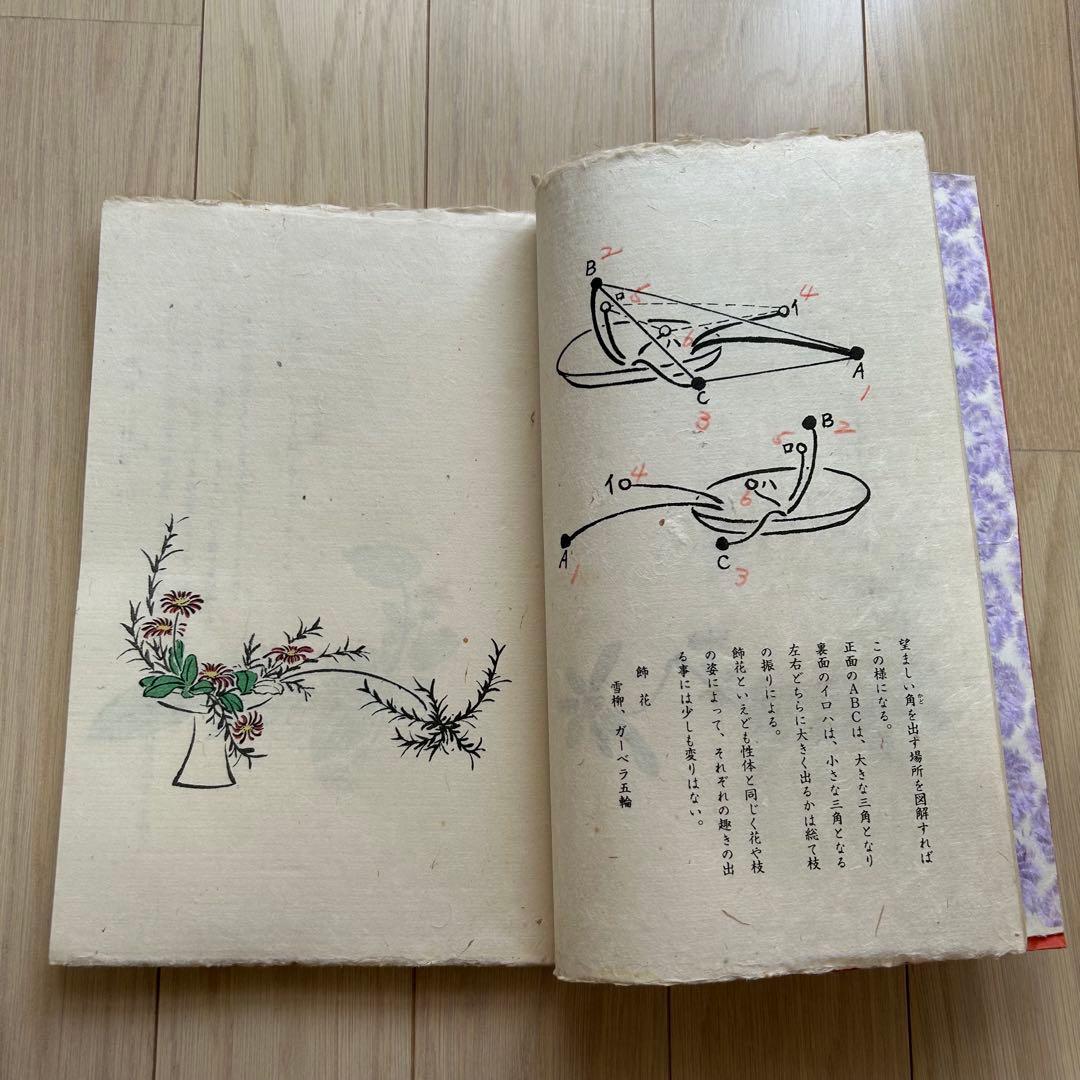 B 2
ロ 5
イ 4
ハ 6
A 1
C 3
B 2
ロ 5
イ 4
ハ 6
A 1
C 3
望ましい角を出す場所を図解すれば
かど
この様になる。
正面のABCは、大きな三角となり
裏面のイロハは、小さな三角となる
左右どちらに大きく出るかは総て枝
の振りによる。
飾花といえども性体と同じく花や枝
の姿によって、それぞれの趣きの出
る事には少しも変りはない。
飾花
雪柳、ガーベラ五輪